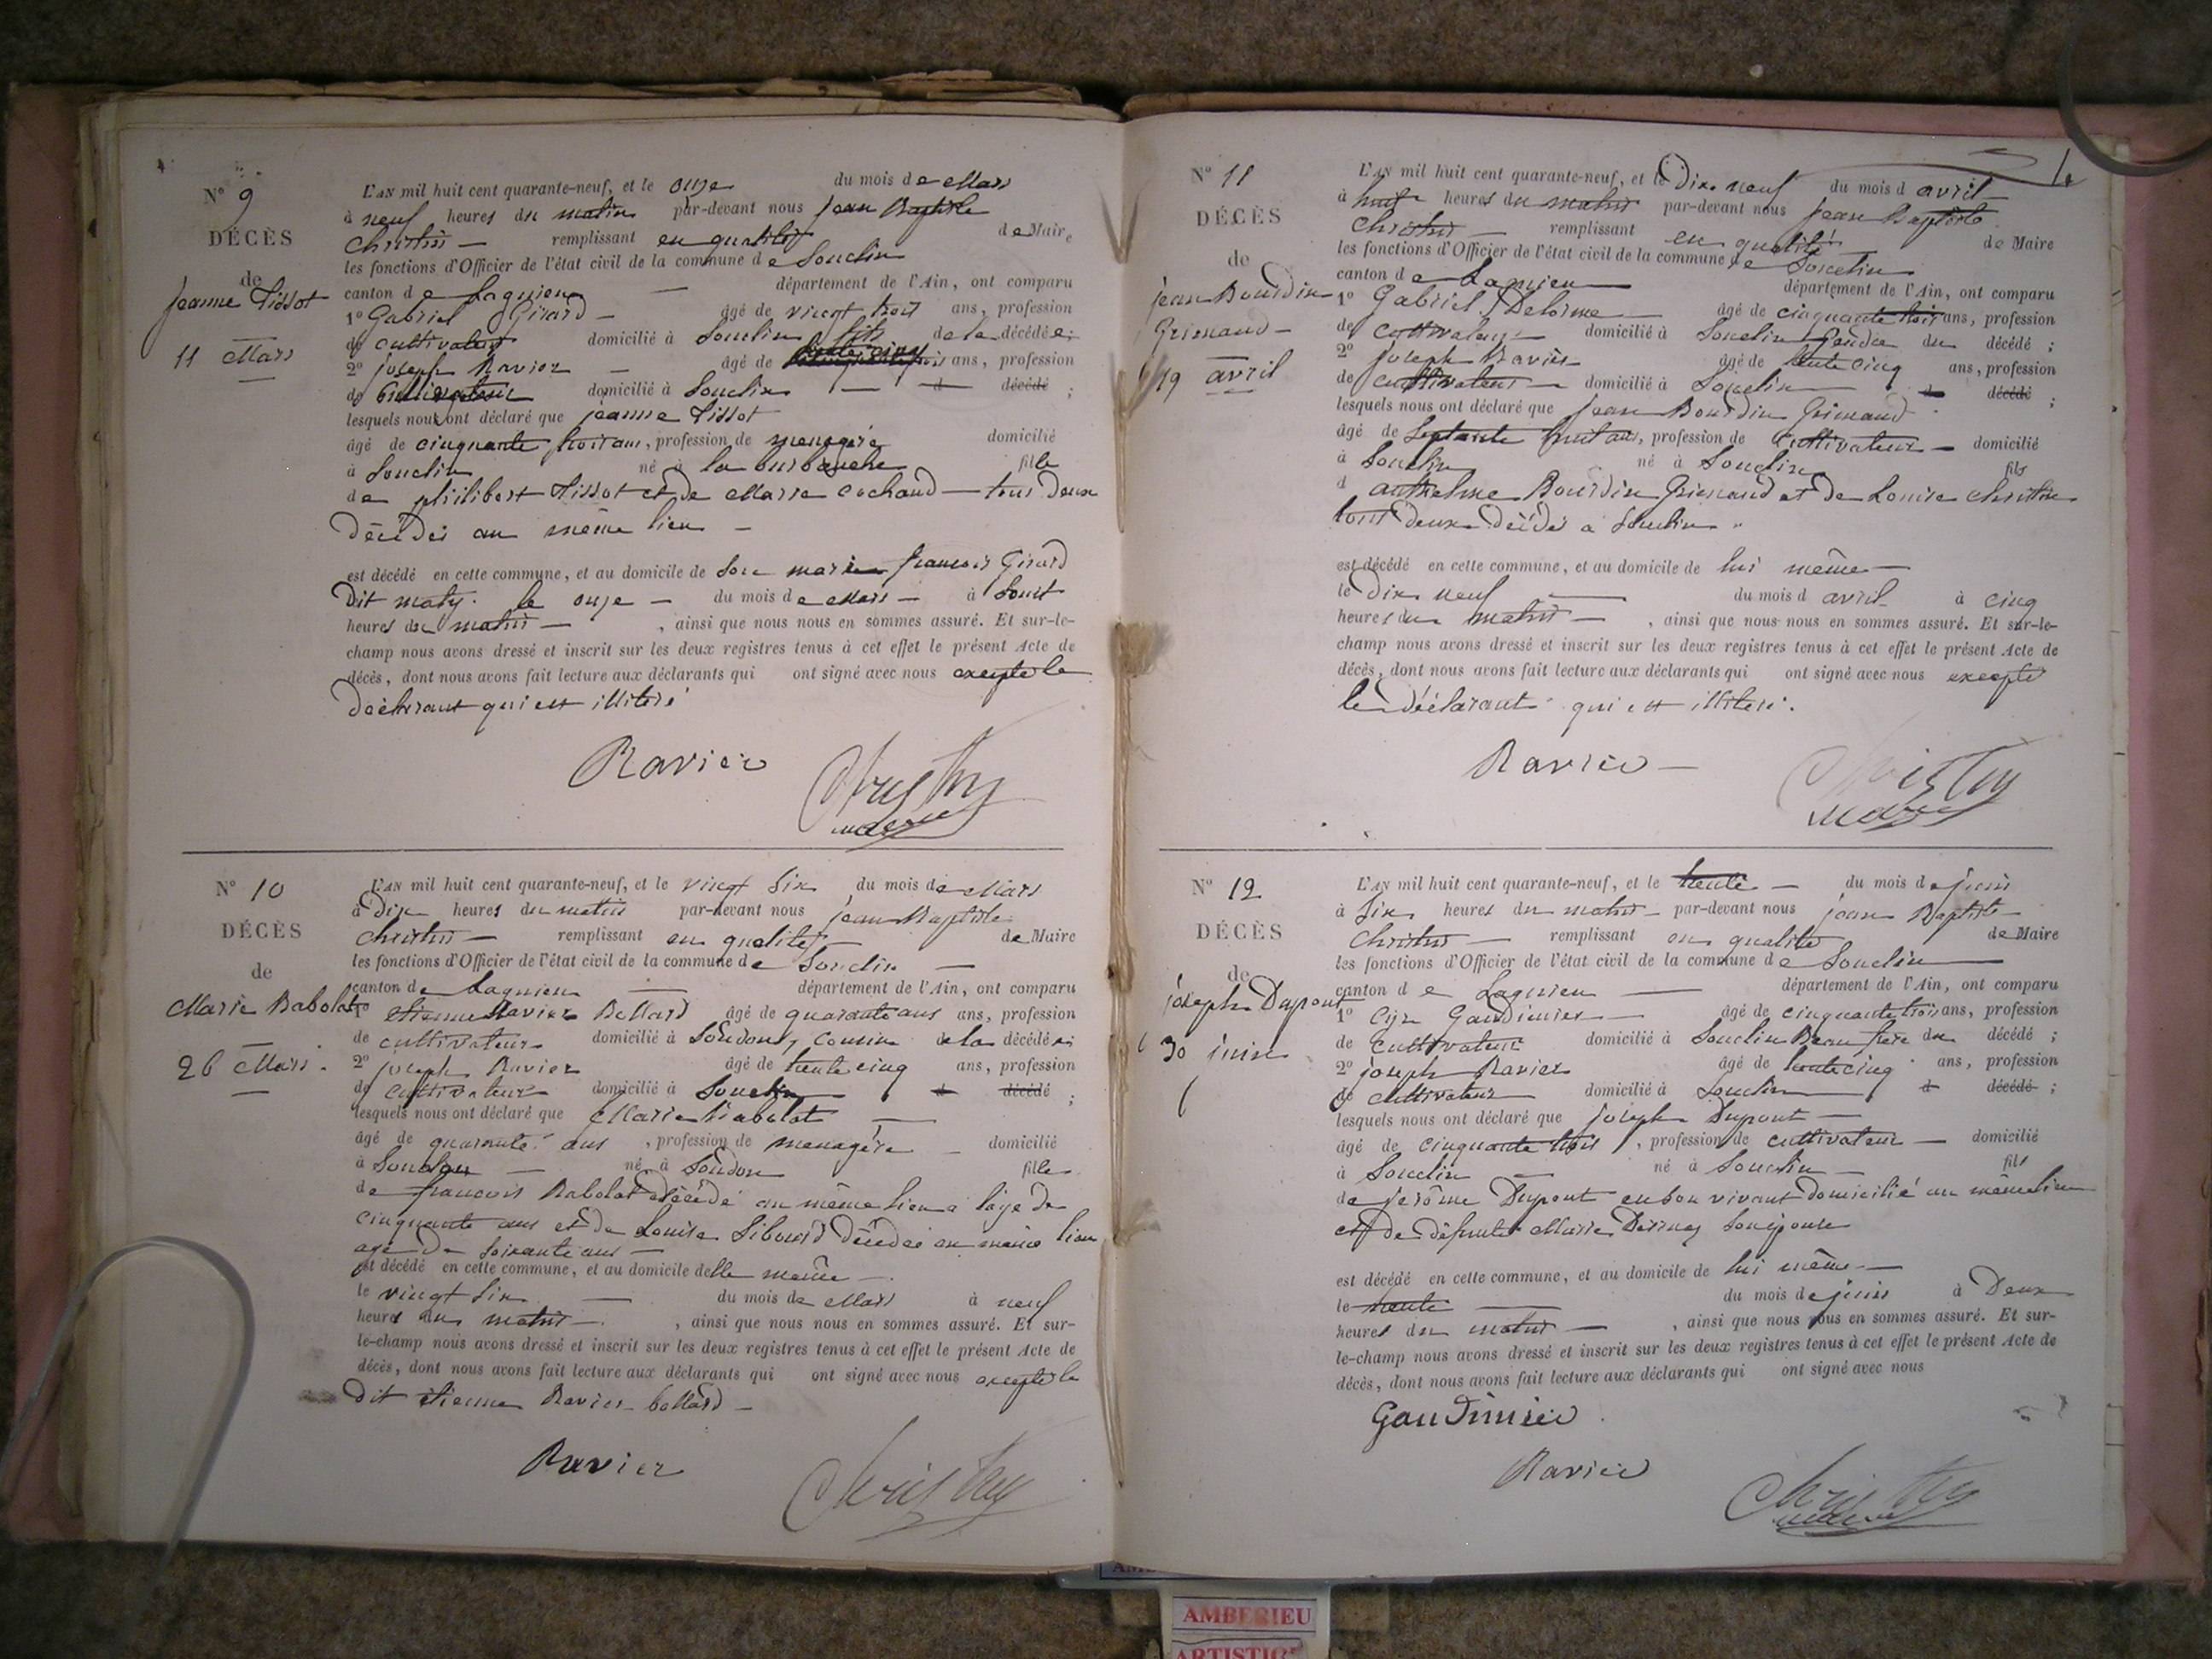 N° 9
DÉCÈS
de
jeanne Tissot
11 Mars
L'AN mil huit cent quarante-neuf, et le onze du mois de Mars
à neuf heures du matin par-devant nous jean Baptiste
Christin remplissant en qualité de Maire
les fonctions d'Officier de l'état civil de la commune de Souclin
canton de Lagnieu département de l'Ain, ont comparu
1° Gabriel Girard âgé de vingt trois ans, profession
de cultivateur domicilié à Souclin fils de la décédée;
2° joseph Ravier âgé de trente cinq ans, profession
de cultivateur domicilié à Souclin d décédé ;
lesquels nous ont déclaré que jeanne Tissot
âgé de cinquante trois ans, profession de menagère domicilié
à Souclin né à la burbanche fille
de philibert Tissot et de Marie Cochaud tous deux
décédés au même lieu
est décédé en cette commune, et au domicile de son mari françois Girard
dit maty. le onze du mois de Mars à
heures du matin , ainsi que nous nous en sommes assuré. Et sur-le-
champ nous avons dressé et inscrit sur les deux registres tenus à cet effet le présent Acte de
décès, dont nous avons fait lecture aux déclarants qui ont signé avec nous excepté le
déclarant qui est illiteré
Ravier Christin
maire
N° 10
DÉCÈS
de
Marie Babolat
26 Mars.
L'AN mil huit cent quarante-neuf, et le vingt six du mois de Mars
à dix heures du matin par-devant nous jean Baptiste
Christin remplissant en qualité de Maire
les fonctions d'Officier de l'état civil de la commune de Souclin
canton de Lagnieu département de l'Ain, ont comparu
1° etienne Ravier Bellard âgé de quarante ans ans, profession
de cultivateur domicilié à Soudon, cousin de la décédée;
2° joseph Ravier âgé de trente cinq ans, profession
de cultivateur domicilié à Souclin d décédé ;
lesquels nous ont déclaré que Marie Babolat
âgé de quarante ans , profession de menagère domicilié
à Soudon né à Soudon fille
de françois Babolat décédé au même lieu a l'age de
cinquante ans et de Louise Sibourd décédée au même lieu
agé de soixante ans
est décédé en cette commune, et au domicile delle même
le vingt six du mois de Mars à neuf
heures du matin , ainsi que nous nous en sommes assuré. Et sur-
le-champ nous avons dressé et inscrit sur les deux registres tenus à cet effet le présent Acte de
décès, dont nous avons fait lecture aux déclarants qui ont signé avec nous excepté le
dit etienne Ravier bellard
Ravier Christin
N° 11
DÉCÈS
de
jean Bourdin
Grimaud
19 avril
L'AN mil huit cent quarante-neuf, et le Dix neuf du mois d avril
à huit heures du matin par-devant nous jean Baptiste
Christin remplissant en qualité de Maire
les fonctions d'Officier de l'état civil de la commune de Souclin
canton de Lagnieu département de l'Ain, ont comparu
1° Gabriel Delorme âgé de cinquante trois ans, profession
de cultivateur domicilié à Souclin Gendre du décédé ;
2° joseph Ravier âgé de trente cinq ans, profession
de cultivateur domicilié à Souclin d décédé ;
lesquels nous ont déclaré que jean Bourdin Grimaud
âgé de Septante huit ans, profession de Cultivateur domicilié
à Souclin né à Souclin fils
d anthelme Bourdin Grimaud et de Louise Christin
tous deux décédés a Souclin
est décédé en cette commune, et au domicile de lui même
le Dix neuf du mois d avril à cinq
heures du matin , ainsi que nous nous en sommes assuré. Et sur-le-
champ nous avons dressé et inscrit sur les deux registres tenus à cet effet le présent Acte de
décès, dont nous avons fait lecture aux déclarants qui ont signé avec nous excepté
le déclarant qui est illiteré.
Ravier Christin
maire
N° 12
DÉCÈS
de
joseph Dupont
30 juin
L'AN mil huit cent quarante-neuf, et le trente du mois de juin
à six heures du matin par-devant nous jean Baptiste
Christin remplissant en qualité de Maire
les fonctions d'Officier de l'état civil de la commune de Souclin
canton de Lagnieu département de l'Ain, ont comparu
1° Cyr Gaudimier âgé de cinquante trois ans, profession
de cultivateur domicilié à Souclin Beau frere du décédé ;
2° joseph Ravier âgé de trente cinq ans, profession
de cultivateur domicilié à Souclin d décédé ;
lesquels nous ont déclaré que joseph Dupont
âgé de cinquante trois , profession de cultivateur domicilié
à Souclin né à Souclin fils
de jerôme Dupont en son vivant domicilié au même lieu
et de défunte Marie son épouse
est décédé en cette commune, et au domicile de lui même
le trente du mois de juin à Deux
heures du matin , ainsi que nous nous en sommes assuré. Et sur-
le-champ nous avons dressé et inscrit sur les deux registres tenus à cet effet le présent Acte de
décès, dont nous avons fait lecture aux déclarants qui ont signé avec nous
Gaudimier
Ravier Christin
maire
AMBERIEU
ARTISTIQ